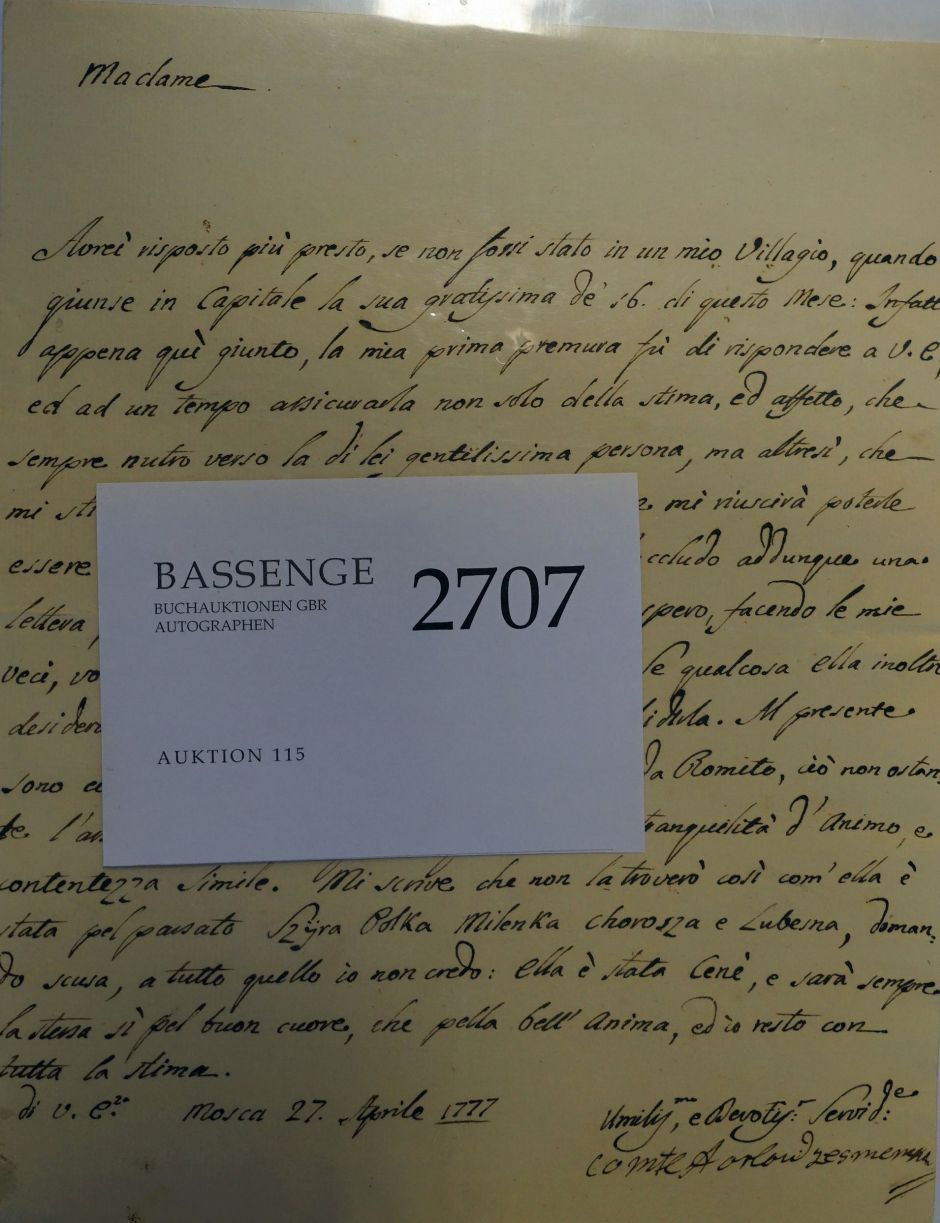 Madame
Avrei risposto più presto, se non fossi stato in un mio Villagio, quando
giunse in Capitale la sua gratissima de' 16. di questo Mese: Infatt
appena quì giunto, la mia prima premura fù di rispondere a V. E,
ed ad un tempo assicurarla non solo della stima, ed affetto, che
sempre nutro verso la di lei gentilissima persona, ma altresì, che
mi mi riuscirà poterle
essere addunque una
lettera, spero, facendo le mie
veci, qualcosa ella inoltre
Al presente
sono da Romito, ciò non ostan
te tranquilità d'Animo, e
contentezza simile. Mi scrive che non la troverò così com' ella è
stata pel passato Szijra Polka Milenka Chorosza e Lubesna, doman:
do scusa, a tutto quello io non credo: Ella è stata Cenè, e sarà sempre
la stessa sì pel buon cuore, che pella bell' Anima, ed io resto con
tutta la stima.
di V. E.za Mosca 27. Aprile 1777
Umiliss.mo, e Devotiss.
Comte
BASSENGE
BUCHAUKTIONEN GBR
AUTOGRAPHEN
2707
AUKTION 115